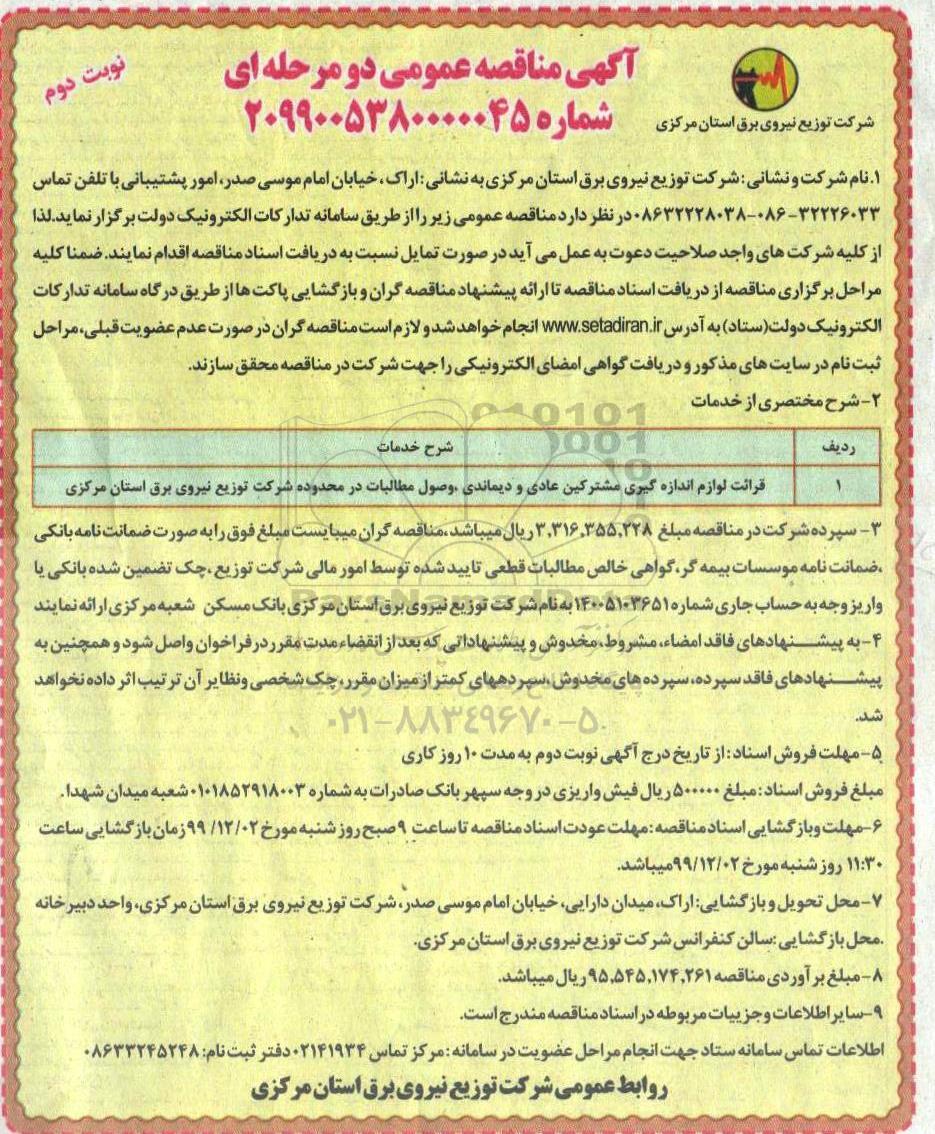 نوبت دوم
آگهی مناقصه عمومی دو مرحله ای
شماره ۲۰۹۹۰۰۵۳۸۰۰۰۰۰۴۵
شرکت توزیع نیروی برق استان مرکزی
۱.نام شرکت و نشانی : شرکت توزیع نیروی برق استان مرکزی به نشانی : اراک ، خیابان امام موسی صدر، امور پشتیبانی با تلفن تماس
۳۲۲۲۶۰۳۳-۰۸۶-۰۸۶۳۲۲۲۸۰۳۸ در نظر دارد مناقصه عمومی زیر را از طریق سامانه تدارکات الکترونیک دولت برگزار نماید.لذا
از کلیه شرکت های واجد صلاحیت دعوت به عمل می آید در صورت تمایل نسبت به دریافت اسناد مناقصه اقدام نمایند. ضمنا کلیه
مراحل برگزاری مناقصه از دریافت اسناد مناقصه تا ارائه پیشنهاد مناقصه گران و بازگشایی پاکت ها از طریق درگاه سامانه تدارکات
الکترونیک دولت(ستاد) به آدرس www.setadiran.ir انجام خواهد شد و لازم است مناقصه گران در صورت عدم عضویت قبلی، مراحل
ثبت نام در سایت های مذکور و دریافت گواهی امضای الکترونیکی را جهت شرکت در مناقصه محقق سازند.
۲- شرح مختصری از خدمات
ردیف شرح خدمات
۱ قرائت لوازم اندازه گیری مشترکین عادی و دیماندی ،وصول مطالبات در محدوده شرکت توزیع نیروی برق استان مرکزی
۳- سپرده شرکت در مناقصه مبلغ ۳,۳۱۶,۳۵۵,۲۲۸ ریال میباشد،مناقصه گران میبایست مبلغ فوق را به صورت ضمانت نامه بانکی
،ضمانت نامه موسسات بیمه گر، گواهی خالص مطالبات قطعی تایید شده توسط امور مالی شرکت توزیع ،چک تضمین شده بانکی یا
واریز وجه به حساب جاری شماره ۱۴۰۰۵۱۰۳۶۵۱ به نام شرکت توزیع نیروی برق استان مرکزی بانک مسکن شعبه مرکزی ارائه نمایند
۴- به پیشنهادهای فاقد امضاء، مشروط، مخدوش و پیشنهاداتی که بعد از انقضاء مدت مقرر در فراخوان واصل شود و همچنین به
پیشنهادهای فاقد سپرده، سپرده های مخدوش، سپردههای کمتر از میزان مقرر، چک شخصی ونظایر آن ترتیب اثر داده نخواهد
شد.
۵- مهلت فروش اسناد : از تاریخ درج آگهی نوبت دوم به مدت ۱۰ روز کاری
مبلغ فروش اسناد : مبلغ ۵۰۰۰۰۰ ریال فیش واریزی در وجه سپهر بانک صادرات به شماره ۰۱۰۱۸۵۲۹۱۸۰۰۳ شعبه میدان شهدا .
۶- مهلت وبازگشایی اسناد مناقصه : مهلت عودت اسناد مناقصه تا ساعت ۹ صبح روز شنبه مورخ ۹۹/۱۲/۰۲ زمان بازگشایی ساعت
۱۱:۳۰ روز شنبه مورخ ۹۹/۱۲/۰۲ میباشد.
۷- محل تحویل و بازگشایی: اراک، میدان دارایی، خیابان امام موسی صدر، شرکت توزیع نیروی برق استان مرکزی، واحد دبیرخانه
.محل بازگشایی :سالن کنفرانس شرکت توزیع نیروی برق استان مرکزی.
۸- مبلغ برآوردی مناقصه ۹۵,۵۴۵,۱۷۴,۲۶۱ ریال میباشد.
۹- سایر اطلاعات و جزییات مربوطه در اسناد مناقصه مندرج است.
اطلاعات تماس سامانه ستاد جهت انجام مراحل عضویت در سامانه : مرکز تماس ۰۲۱۴۱۹۳۴ دفتر ثبت نام: ۰۸۶۳۳۲۴۵۲۴۸
روابط عمومی شرکت توزیع نیروی برق استان مرکزی
ParsNamadData
۰۲۱-۸۸۳۴۹۶۷۰-۵